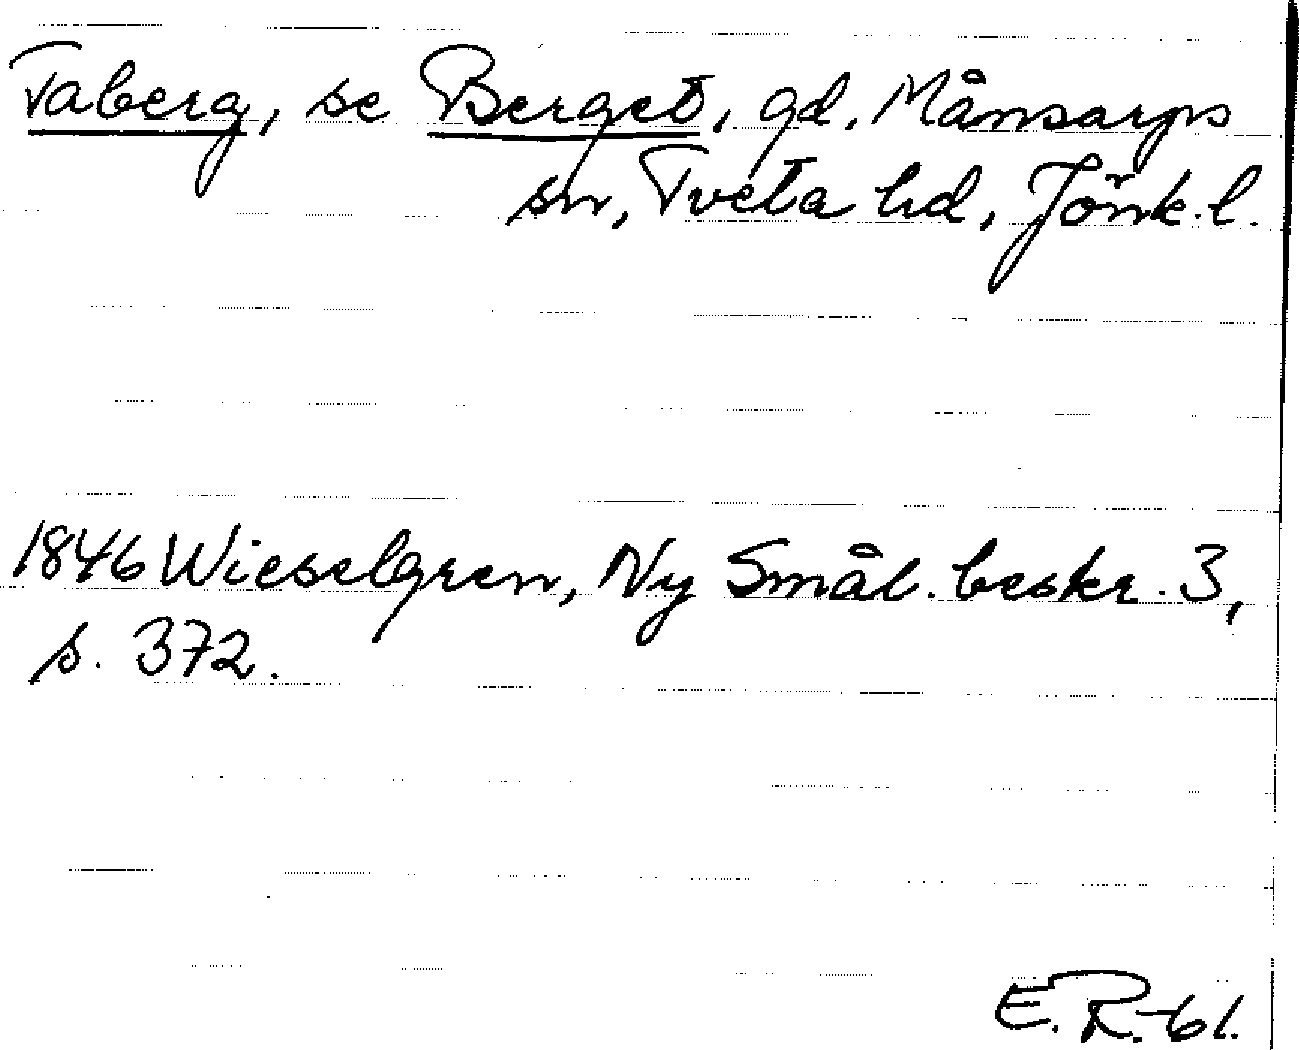 Taberg, se Berget, gd, Månsarps
sn, Tveta hd, Jönk. l.
1846 Wieselgren, Ny Smål. beskr. 3,
s. 372.
E.R.-61.